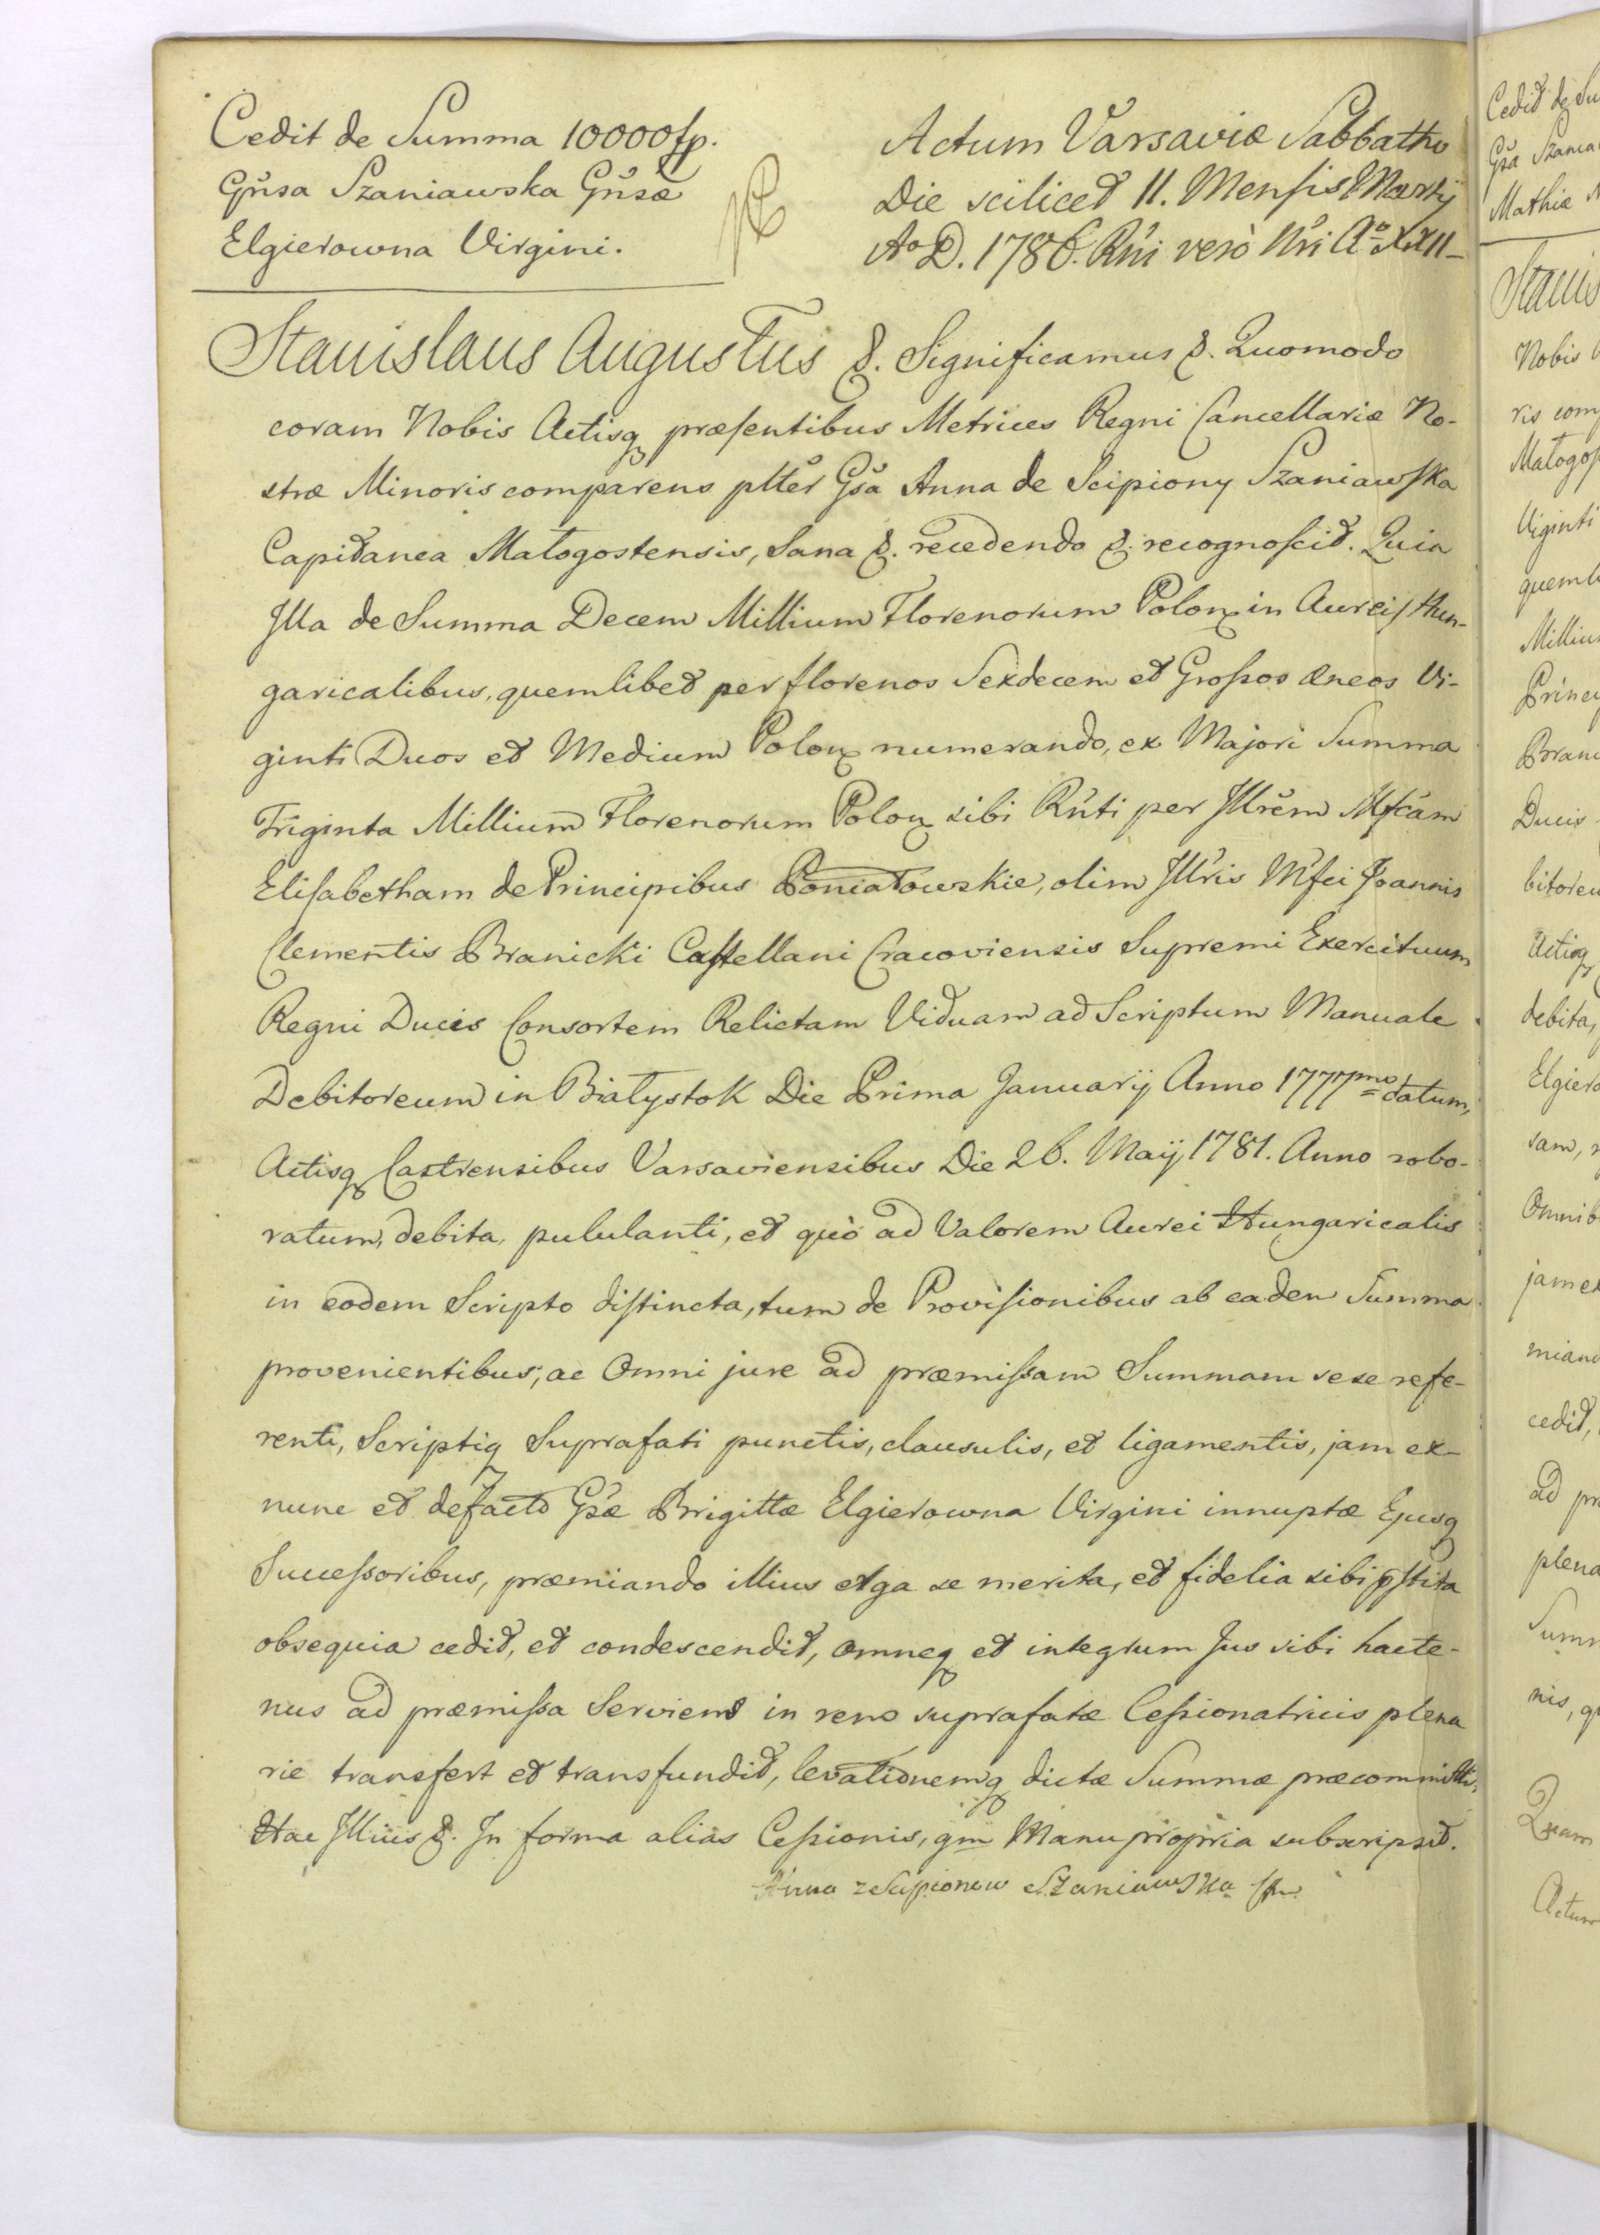 Cedit de Summa 10000 fp.
Gnsa Szaniawska Gnsæ
Elgierowna Virgini.
Actum Varsaviæ Sabbatho
Die scilicet 11. Mensis Martij
Ao D. 1786. Rni verò Nri Ao XXII
Stanislaus Augustus &. Significamus &. Quomodo
coram Nobis Actisq præsentibus Metrices Regni Cancellariæ No-
stræ Minoris comparens pltèr Gsa Anna de Scipiony Szaniawska
Capitanea Małogostensis, Sana &. recedendo &. recognoscit. Quia
Illa de Summa Decem Millium Florenorum Polon in Aureis Hun-
garicalibus, quemlibet per florenos Sexdecem et Grossos æneos Vi-
ginti Duos et Medium Polon numerando, ex Majori Summa
Triginta Millium Florenorum Polon sibi Rnti per Illrem Mfcam
Elisabetham de Principibus Poniatowskie, olim Illris Mfci Joannis
Clementis Branicki Castellani Cracoviensis Supremi Exercituum
Regni Ducis Consortem Relictam Viduam ad Scriptum Manuale
Debitoreum in Białystok Die Prima Januarij Anno 1777mo datum,
Actisq Castrensibus Varsaviensibus Die 26. Maij 1781. Anno robo-
ratum, debita, pululanti, et quò ad Valorem Aurei Hungaricalis
in eodem Scripto distincta, tum de Provisionibus ab eadem Summa
provenientibus; ac Omni jure ad præmissam Summam sese refe-
renti, Scriptiq Suprafati punctis, clausulis, et ligamentis, jam ex-
nunc et defacto Gsæ Brigittæ Elgierowna Virgini innuptæ Ejusq
Successoribus, præmiando illius erga se merita, et fidelia sibi pstita
obsequia cedit, et condescendit, omneq et integrum Jus sibi hacte-
nus ad præmissa Serviens in rem suprafatæ Cessionatricis plena
rie transfert et transfundit, levationemq dictæ Summæ præcommitti,
Hac Illius &. In forma alias Cessionis, qm Manu propria subscripsit.
Anna z Scipionow Szaniawska